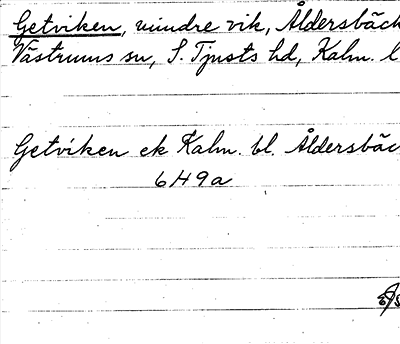 Getviken, mindre vik, Åldersbäck
Västrums sn, S. Tjusts hd, Kalm. l
Getviken ek Kalm. bl. Åldersbäc
6H9a